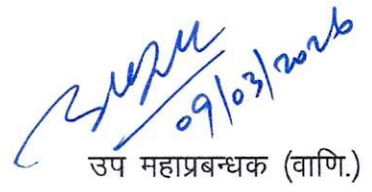 09/03/2026
उप महाप्रबन्धक (वाणि.)